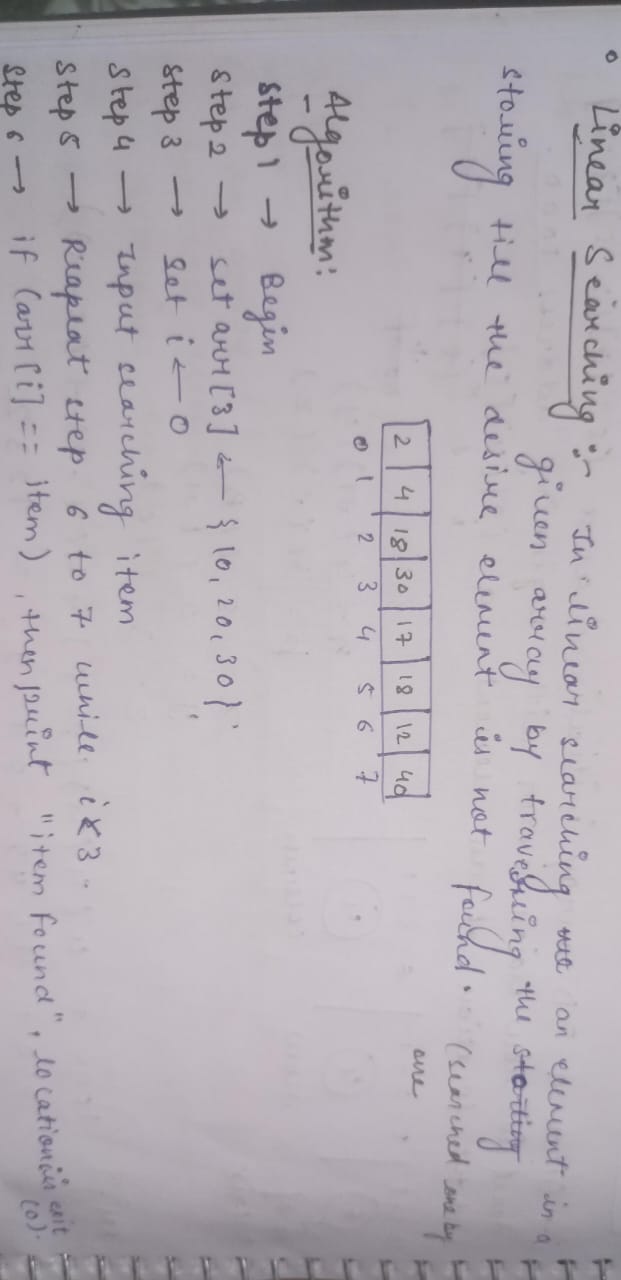 Linear Searching :- In linear searching the an element in a
given array by traversing the starting
storing till the desire element is not found. (searched one by
one
2 4 18 30 17 18 12 40
0 1 2 3 4 5 6 7
Algorithm:
Step 1 → Begin
Step 2 → set arr[3] ← { 10, 20, 30 }
Step 3 → Set i ← 0
Step 4 → Input searching item
Step 5 → Reapeat step 6 to 7 while i < 3.
Step 6 → if (arr[i] == item), then print "item found", location i exit
(0).